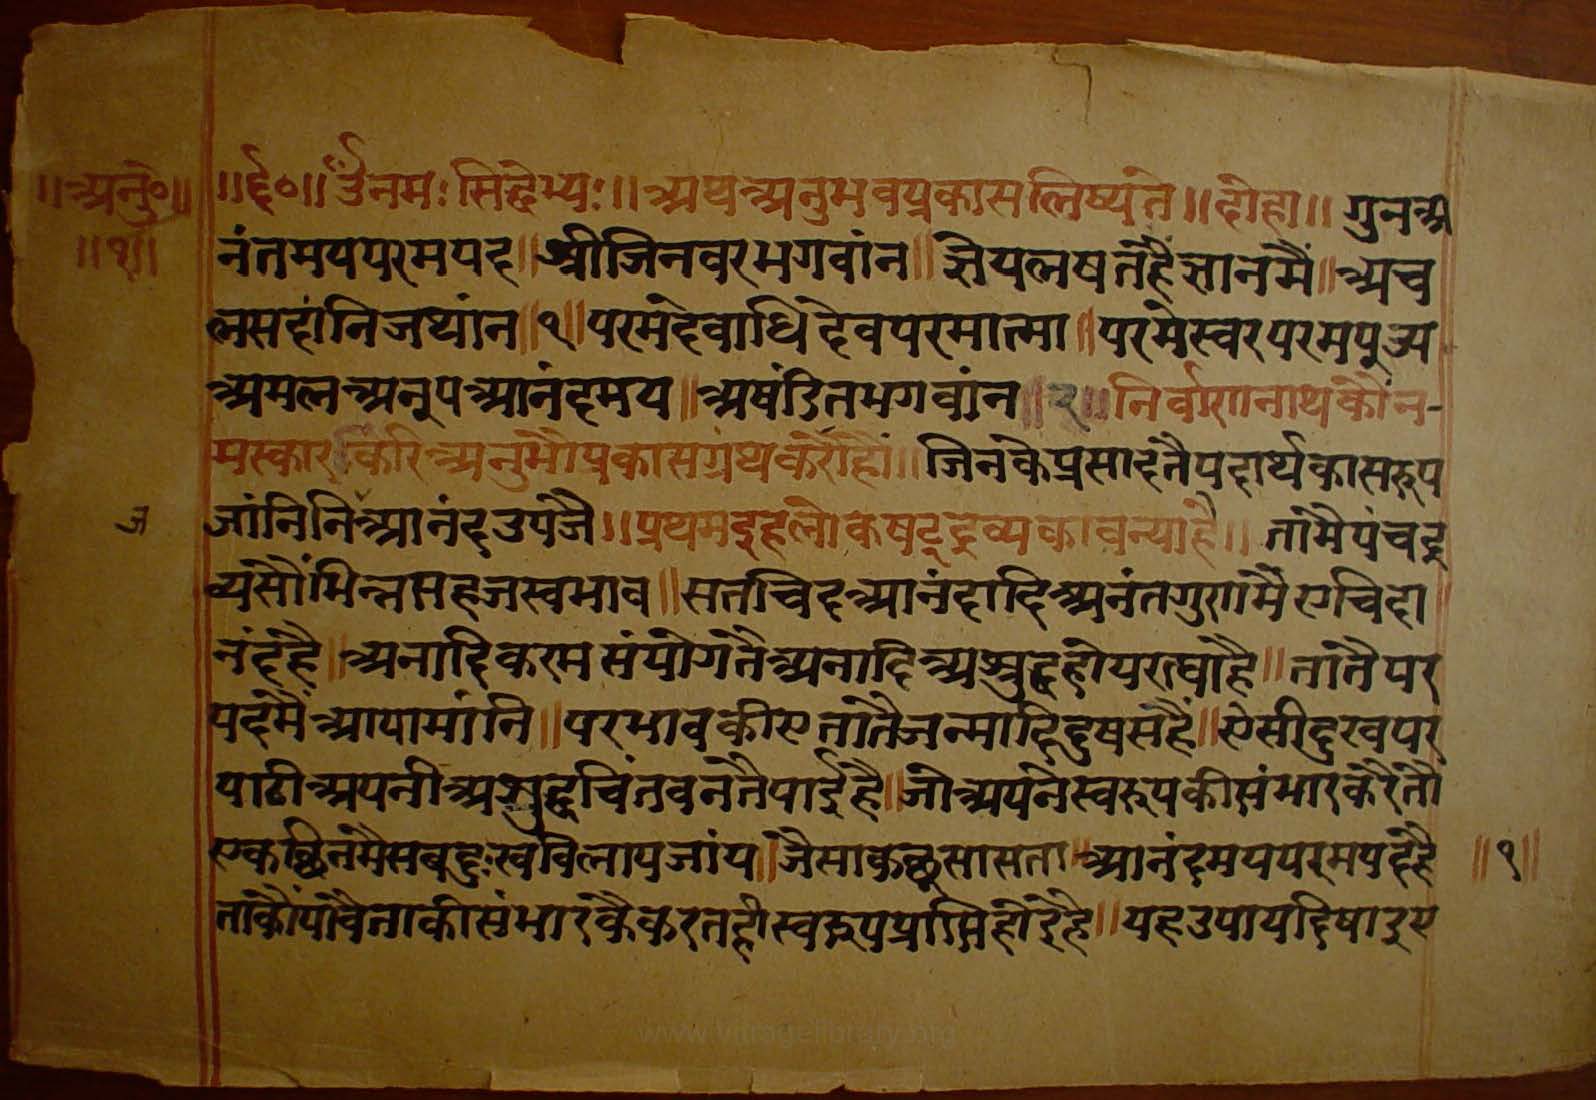 ॥अनु०॥ ॥र्द०॥ ॐनमः सिद्धेभ्यः॥ अथअनुभवप्रकासलिष्यंते॥दोहा॥ गुनअ
॥१॥ नंतमयपरमपद॥श्रीजिनवरभगवांन॥ज्ञेयलषतहैज्ञानमैं॥अच
लसदांनिजथांन॥१॥परमदेवाधिदेवपरमात्मा॥परमेस्वरपरमपुज्य
अमलअनुपआनंदमय॥अषंडितभगवांन॥२॥निर्वाणनाथकौंन-
मस्कारकरिअनुभौप्रकासग्रंथकरौंहौं॥जिनकेप्रसादतैपदार्थकासरूप
जांनिनिआनंदउपजै॥प्रथमइहलोकषट्द्रव्यकावन्याहै॥ तांमैपंचद्र
व्यसौंभिन्नसहजस्वभाव॥सतचिदआनंदादिअनंतगुणमैंएचिदा
नंदहै॥अनादिकरमसंयोगतैंअनादिअसुद्धहोयरह्याहै॥तातैपर
पदमैंआपामांनि॥परभावकीएतातैजन्मादिदुषसहैं॥ऐसीदुखपर
पाटीअपनीअसुद्धचिंतवनतैपाईहै॥जोअपनैस्वरूपकीसंभारकरैतौ
एकछिनमैसबदुःखविलापजांय॥जैसाकछुसासता॥आनंदमयपरमपदहै ॥१॥
तांकौंपांवैताकीसंभारकैकरतहीस्वरूपप्राप्तिहोइहै॥यहउपायदिषाइए